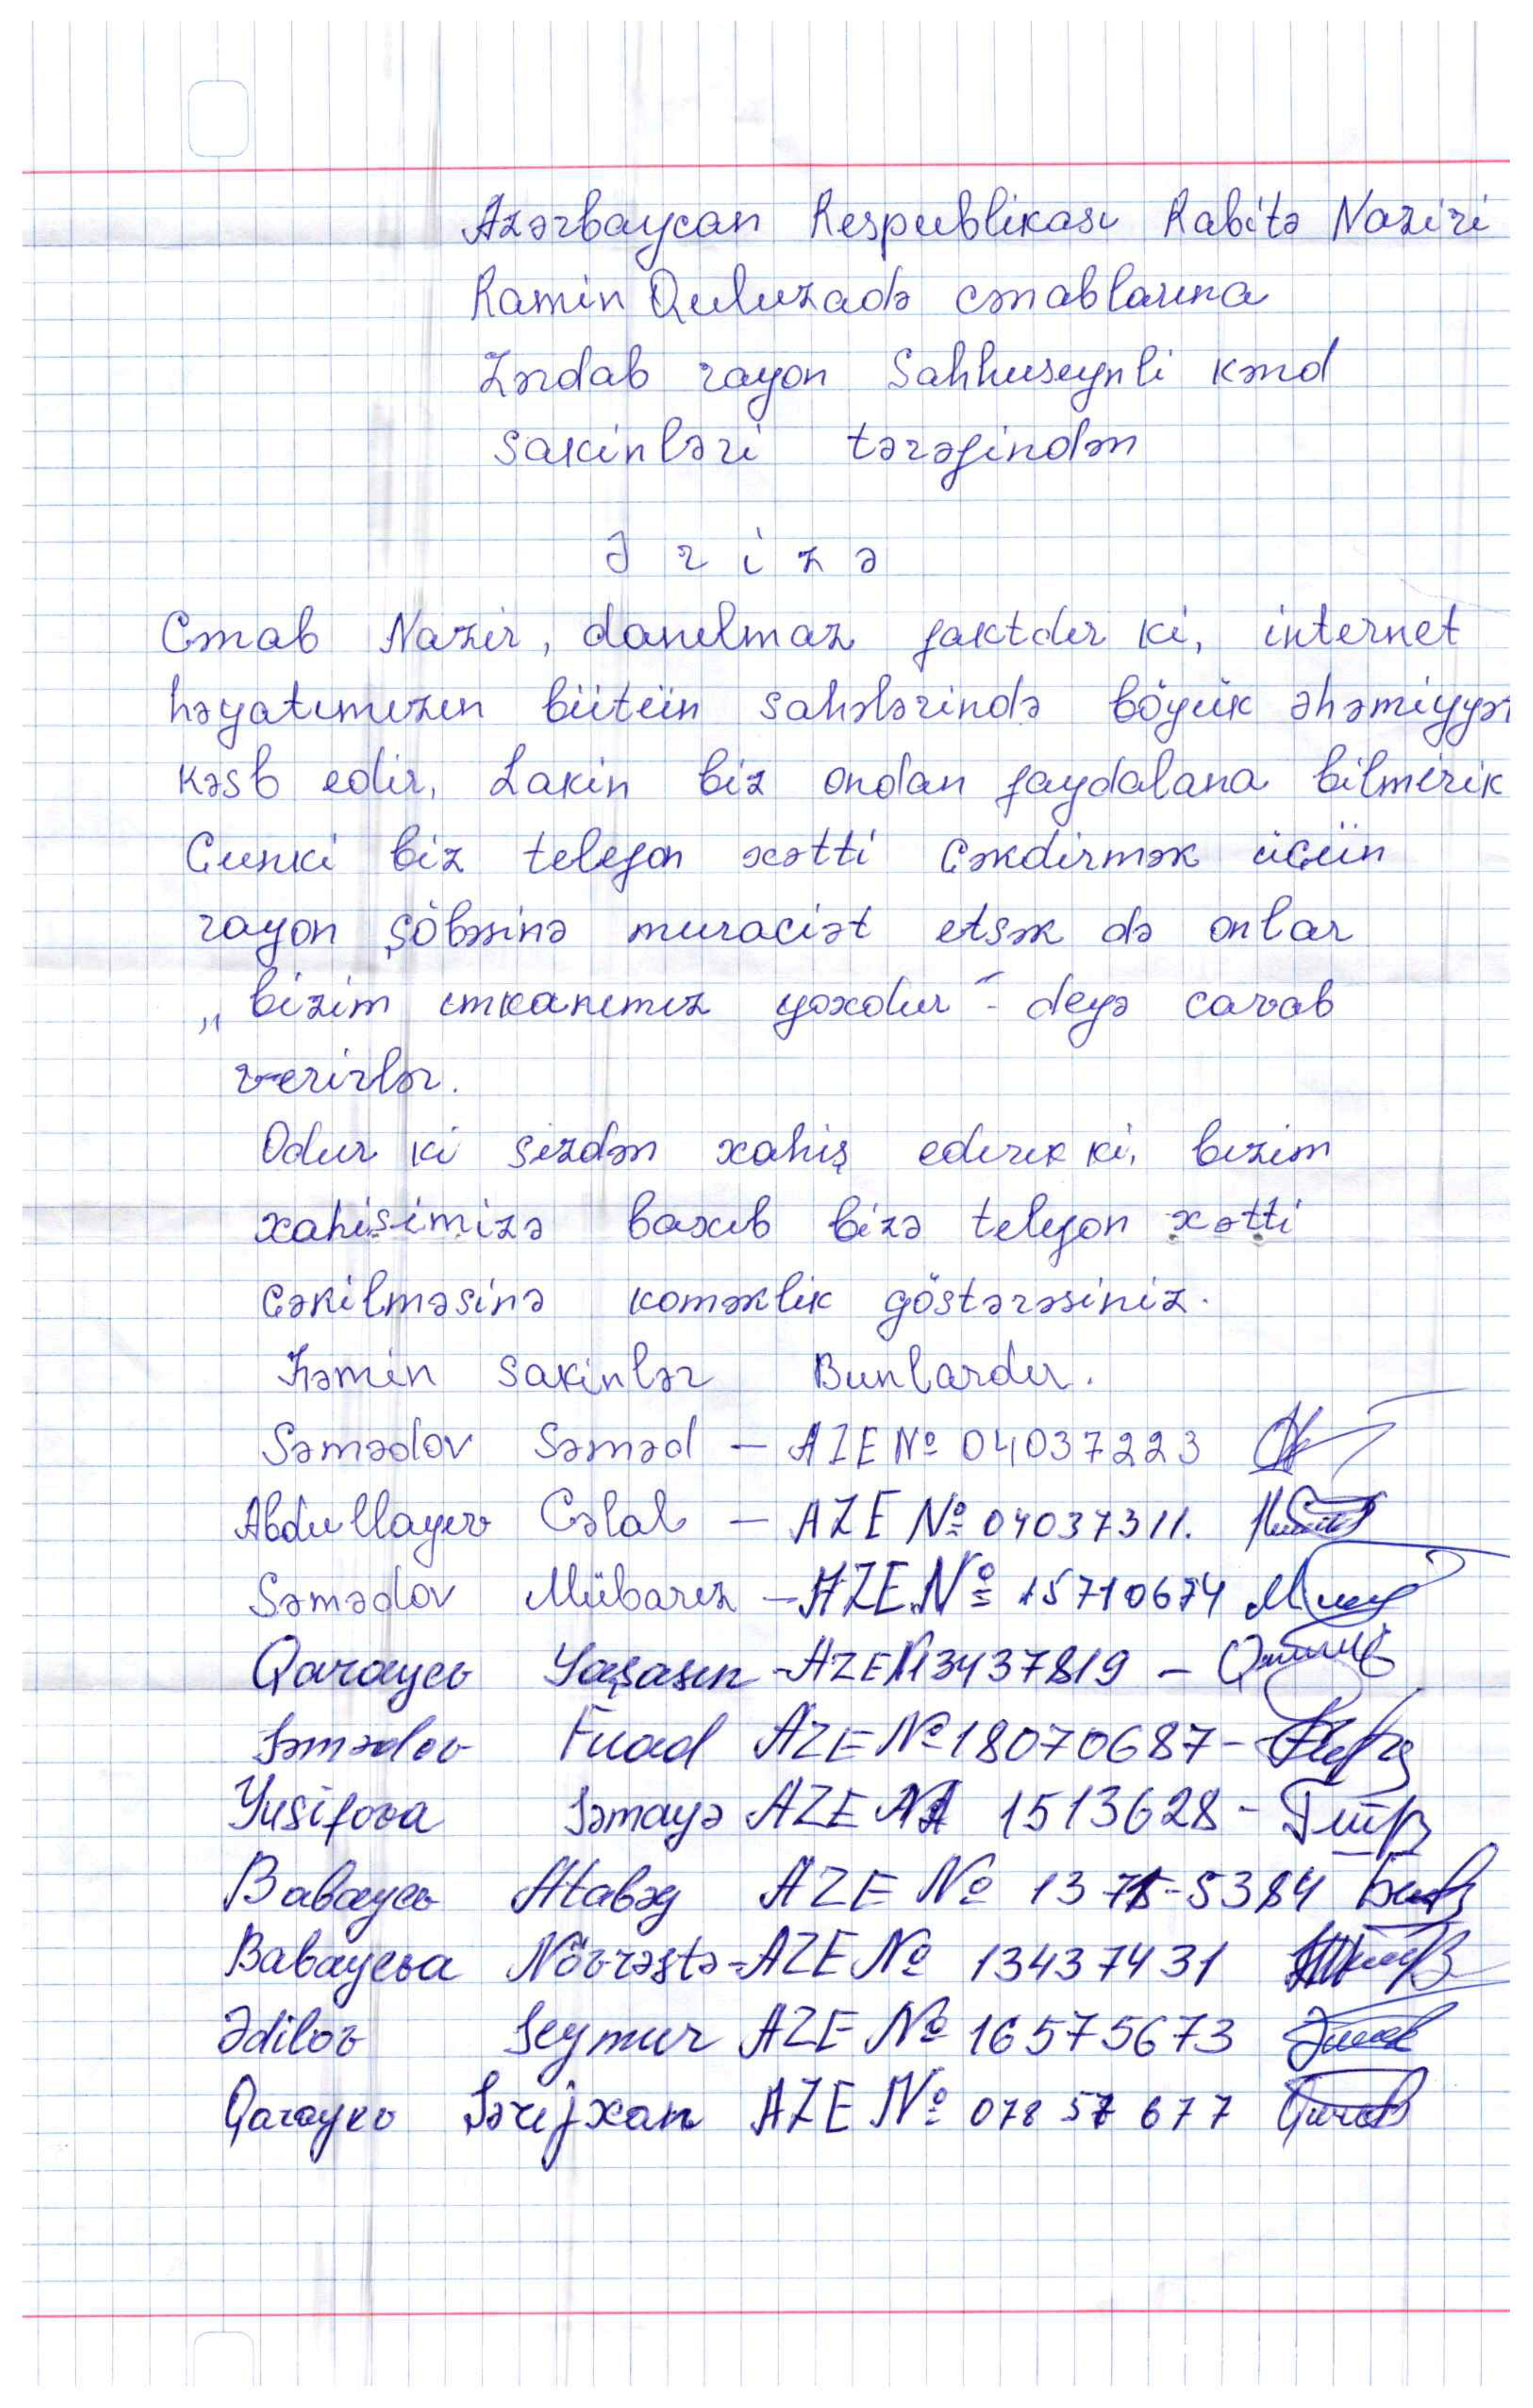 Azərbaycan Respublikası Rabitə Naziri
Ramin Quluzadə cənablarına
Zərdab rayon Sahhuseynli kənd
sakinləri tərəfindən
Ə r i z ə
Cənab Nazir, danılmaz faktdır ki, internet
həyatımızın bütün sahələrində böyük əhəmiyyət
kəsb edir, Lakin biz ondan faydalana bilmirik
Çunki biz telefon xətti çəkdirmək üçün
rayon şöbəsinə muraciət etsək də onlar
„bizim imkanımız yoxdur" - deyə cavab
verirlər.
Odur ki sizdən xahiş edirik ki, bizim
xahişimizə baxıb bizə telefon xətti
çəkilməsinə koməklik göstərəsiniz.
Həmin sakinlər Bunlardır.
Səmədov Səməd – AZE № 04037223
Abdullayev Cəlal – AZE № 04037311.
Səmədov Mübariz – AZE № 15710674
Qarayev Yaşasın - AZE N13437819 –
Səmədov Fuad AZE № 18070687 -
Yusifova Səmayə AZE № 1513628 -
Babayev Atabəy AZE № 13 -5384
Babayeva Növrəstə - AZE № 13437431
Ədilov Seymur AZE № 16575673
Qarayev Şərifxan AZE № 078 57 677